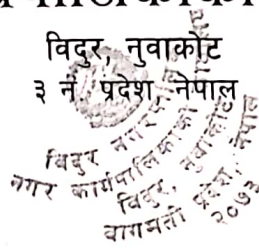 विदुर, नुवाकोट
३ नं. प्रदेश नेपाल
विदुर नगरपालिका
नगर कार्यपालिकाको
विदुर, नुवाकोट
बागमती प्रदेश, नेपाल
२०७३